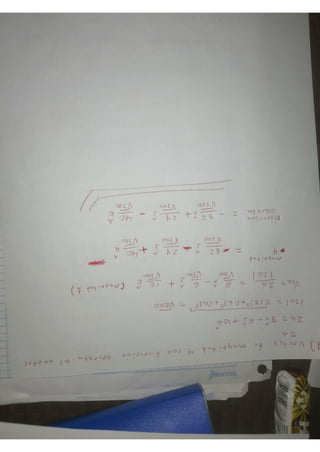 ) Vector de magnitud 4 con direccion opuesta al vector
2a
2a = 8î - 6ĵ + 10k̂
|2a| = √(8)²+(-6)²+(10)² = √200
Vu = 2a/|2a| = 8/√200 î - 6/√200 ĵ + 10/√200 k̂ (magnitud 1)
magnitud 4 = 32/√200 î - 24/√200 ĵ + 40/√200 k̂
Direccion opuesta = - 32/√200 î + 24/√200 ĵ - 40/√200 k̂